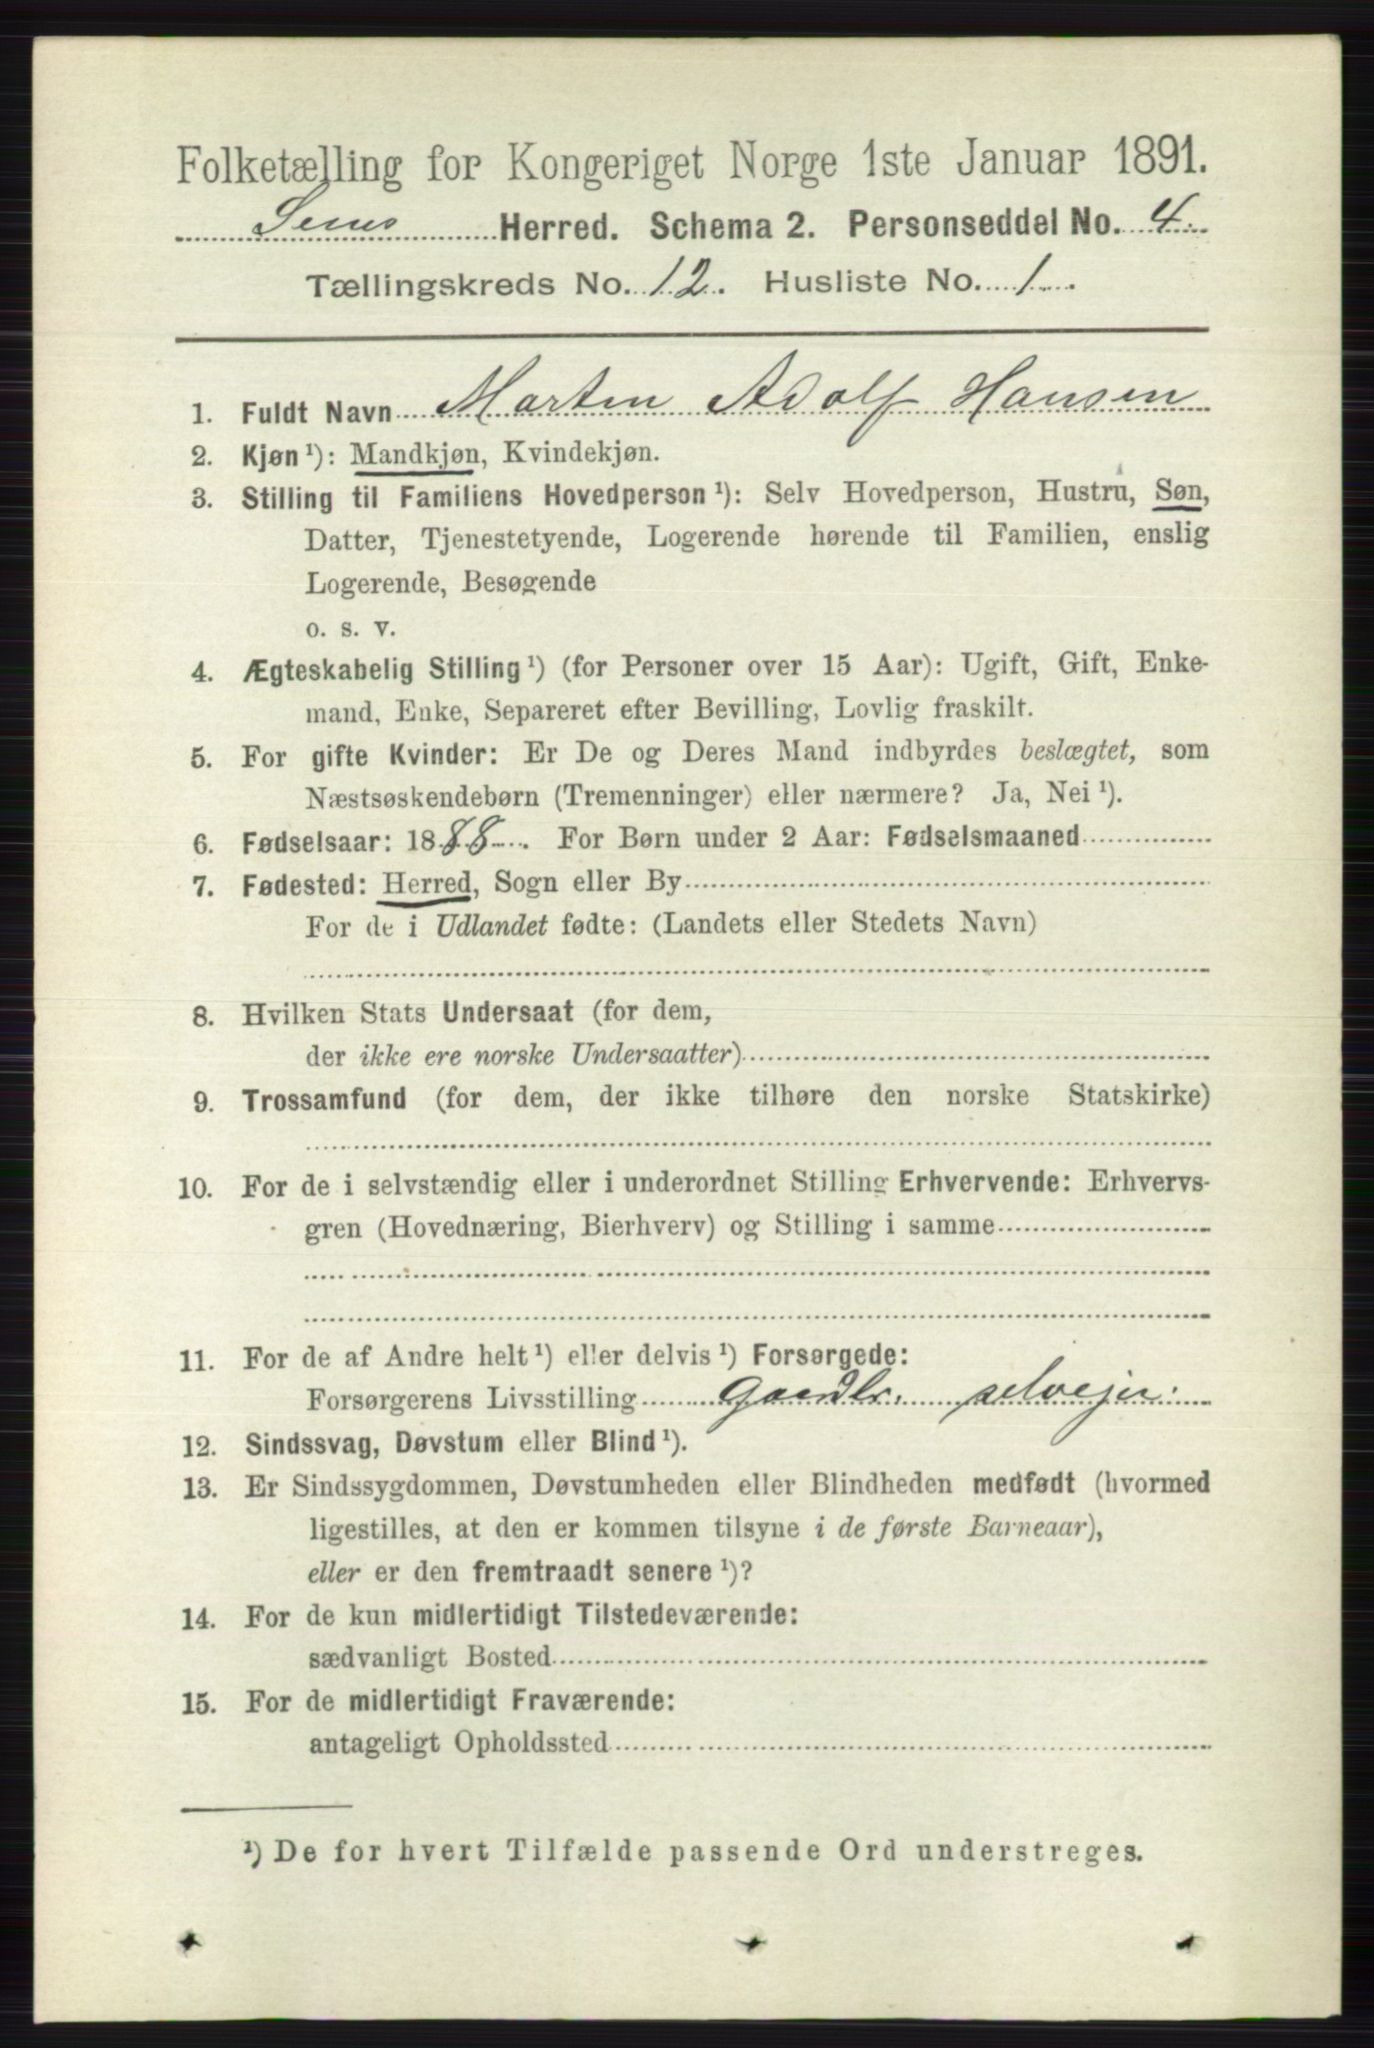 Folketælling for Kongeriget Norge 1ste Januar 1891.
Sems Herred. Schema 2. Personseddel No. 4.
Tællingskreds No. 12. Husliste No. 1.
1. Fuldt Navn Martin Adolf Hansen
2. Kjøn ¹): Mandkjøn, Kvindekjøn.
3. Stilling til Familiens Hovedperson ¹): Selv Hovedperson, Hustru, Søn,
Datter, Tjenestetyende, Logerende hørende til Familien, enslig
Logerende, Besøgende
o. s. v.
4. Ægteskabelig Stilling ¹) (for Personer over 15 Aar): Ugift, Gift, Enke-
mand, Enke, Separeret efter Bevilling, Lovlig fraskilt.
5. For gifte Kvinder: Er De og Deres Mand indbyrdes beslægtet, som
Næstsøskendebørn (Tremenninger) eller nærmere? Ja, Nei ¹).
6. Fødselsaar: 1888. For Børn under 2 Aar: Fødselsmaaned
7. Fødested: Herred, Sogn eller By
For de i Udlandet fødte: (Landets eller Stedets Navn)
8. Hvilken Stats Undersaat (for dem,
der ikke ere norske Undersaatter)
9. Trossamfund (for dem, der ikke tilhøre den norske Statskirke)
10. For de i selvstændig eller i underordnet Stilling Erhvervende: Erhvervs-
gren (Hovednæring, Bierhverv) og Stilling i samme
11. For de af Andre helt ¹) eller delvis ¹) Forsørgede:
Forsørgerens Livsstilling Gaardbr. selvejer.
12. Sindssvag, Døvstum eller Blind ¹).
13. Er Sindssygdommen, Døvstumheden eller Blindheden medfødt (hvormed
ligestilles, at den er kommen tilsyne i de første Barneaar),
eller er den fremtraadt senere ¹)?
14. For de kun midlertidigt Tilstedeværende:
sædvanligt Bosted
15. For de midlertidigt Fraværende:
antageligt Opholdssted
¹) De for hvert Tilfælde passende Ord understreges.